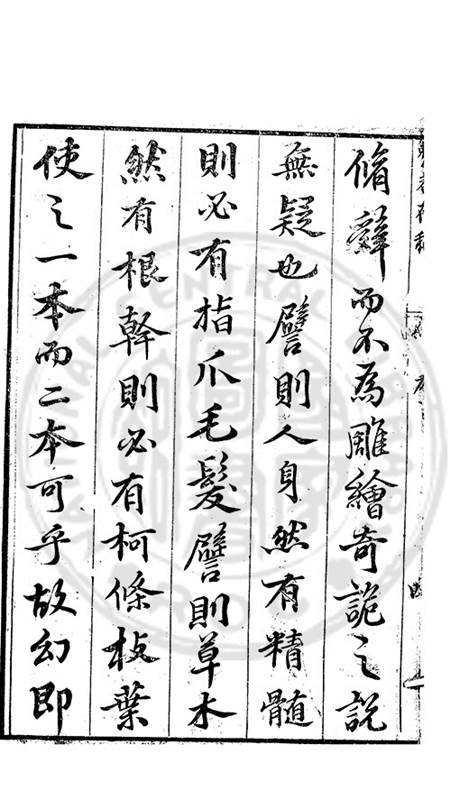 脩辭而不為雕繪奇詭之說
無疑也譬則人身然有精髓
則必有指爪毛髮譬則草木
然有根幹則必有柯條枝葉
使之一本而二本可乎故幻即